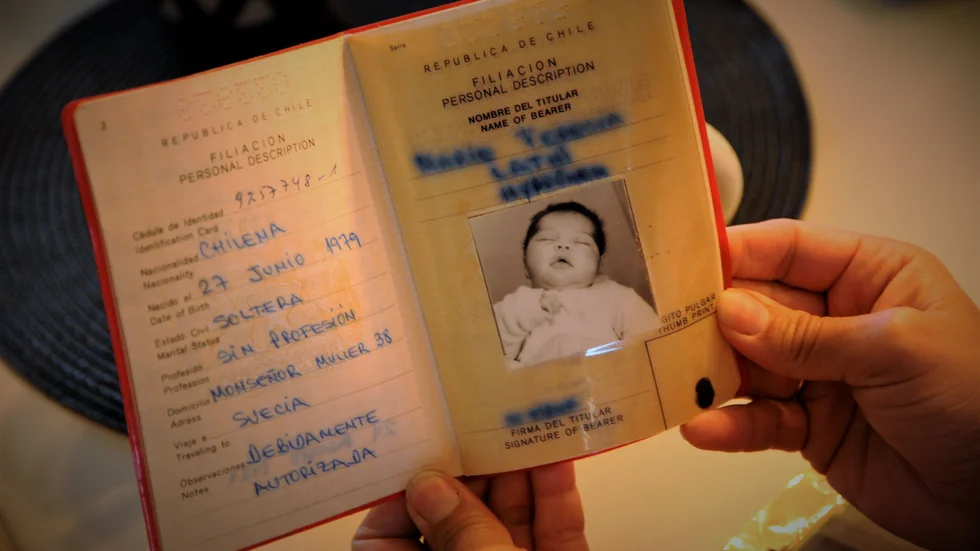 2
REPUBLICA DE CHILE
FILIACION
PERSONAL DESCRIPTION
Cédula de Identidad 9257748-1
Identification Card
Nacionalidad CHILENA
Nacionality
Nacido el 27 JUNIO 1979
Date of Birth
Estado Civil SOLTERA
Marital Status
Profesión SIN PROFESIÓN
Profession
Domicilio MONSEÑOR MULLER 38
Adress
Viaje a SUECIA
Traveling to
Observaciones DEBIDAMENTE
Notes AUTORIZADA
Serie
REPUBLICA DE CHILE
FILIACION
PERSONAL DESCRIPTION
NOMBRE DEL TITULAR
NAME OF BEARER
GITO PULGAR
THUMB PRINT
FIRMA DEL TITULAR
SIGNATURE OF BEARER